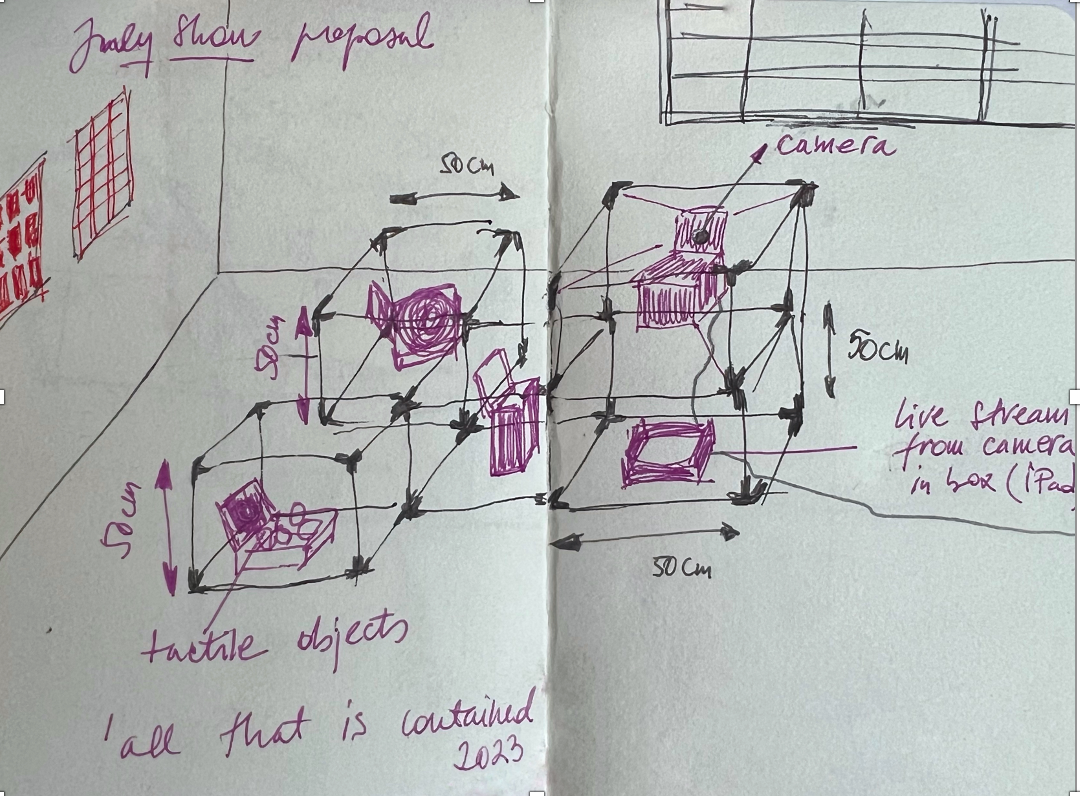 July Show proposal
50cm
camera
50cm
50cm
Live stream
from camera
in box (iPad
50cm
50cm
tactile objects
'all that is contained
2023